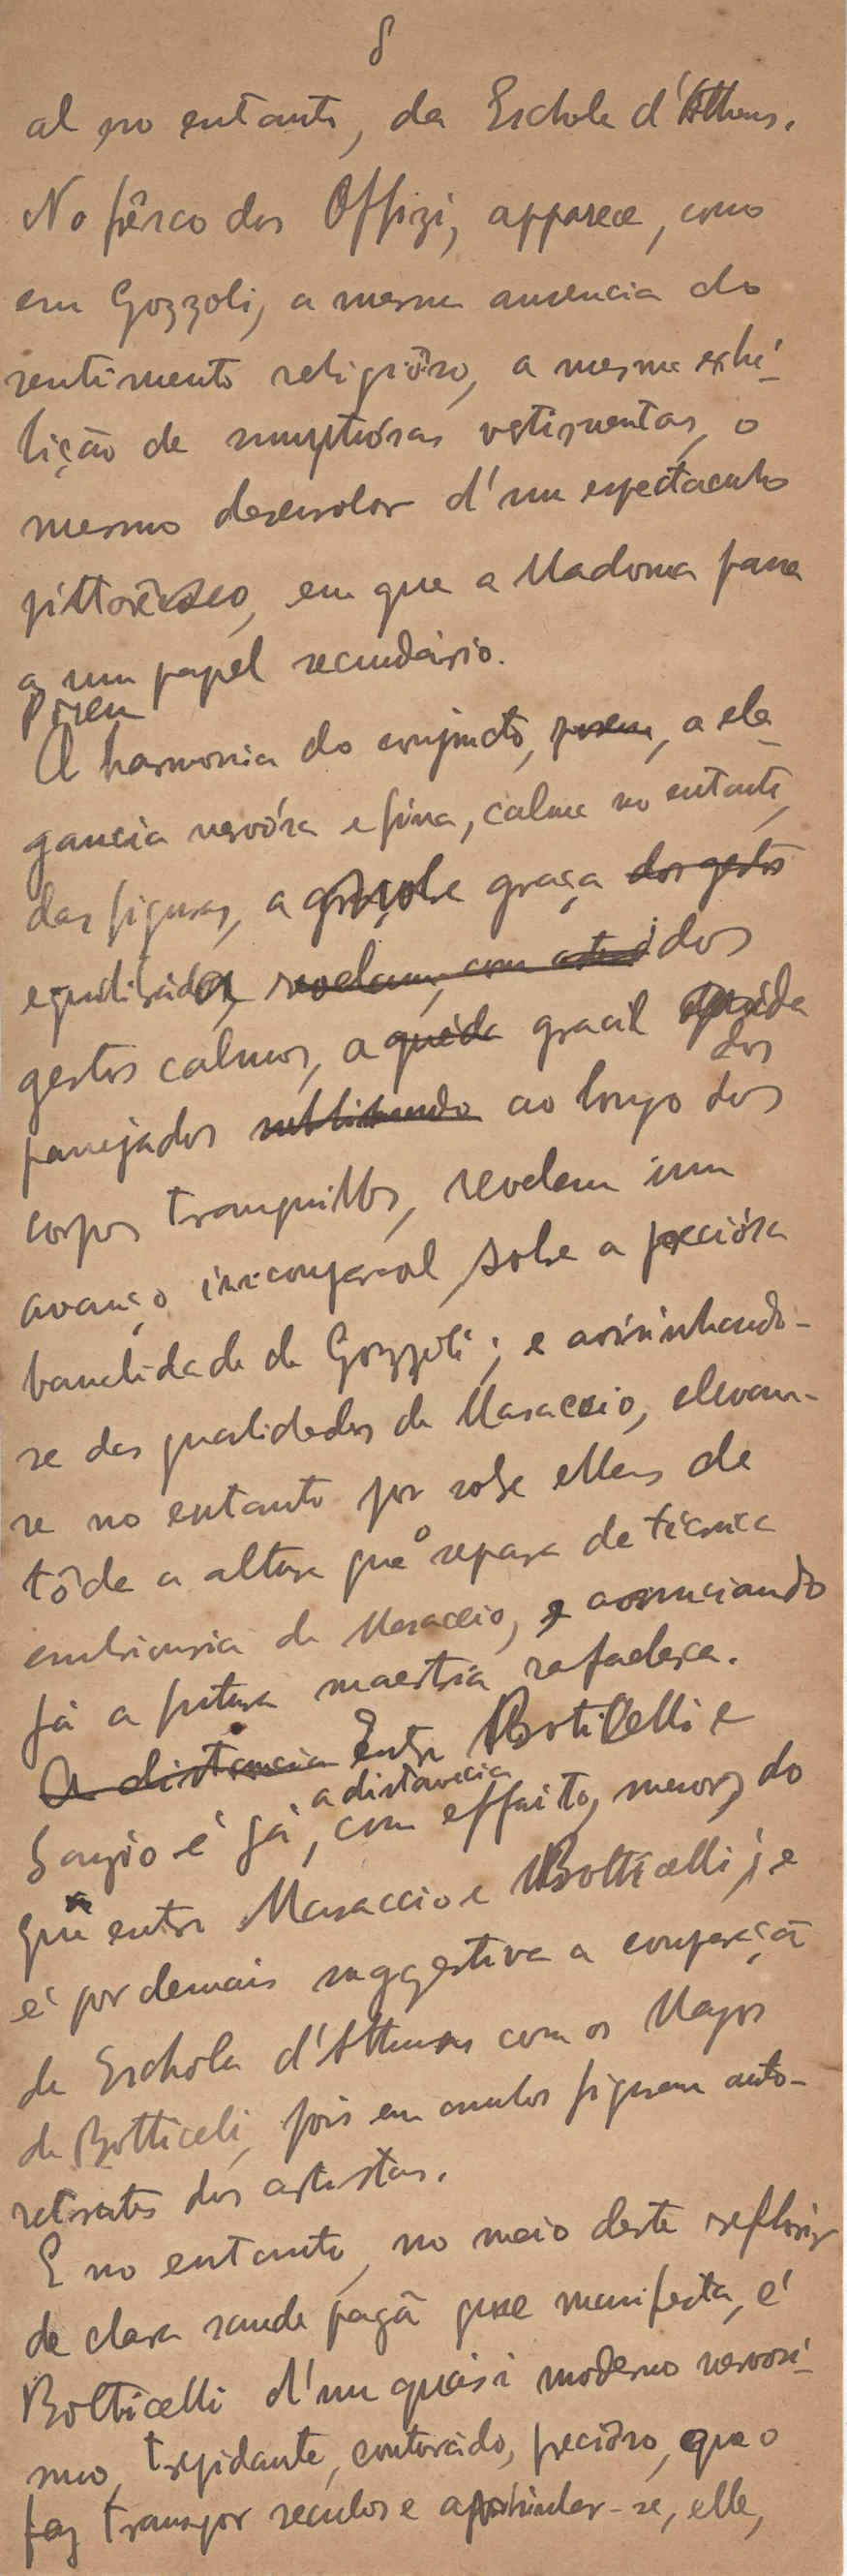 8
al no entanto, da Eschola d'Athenas.
No frêsco dos Offizi, apparece, como
em Gozzoli, a mesma ausencia do
sentimento religiôso, a mesma exhi-
bição de sumptuósas vestimentas, o
mesmo desenrolar d'um espectaculo
pittorêsco, em que a Madona passa
a um papel secundário.
Porem
A harmonia do conjuncto, porem, a ele-
gancia nervósa e fina, calma no entanto,
das figuras, a graça dos gestos
equilibrada, revelam, com dos
gestos calmos, a quéda gracil quéda
dos
panejados ao longo dos
corpos tranquillos, revelam um
avanço incomparavel sobre a preciósa
banalidade de Gozzoli; e avisinhando-
se das qualidades de Masaccio, elevam-
se no entanto por sobre ellas de
tôda a altura que o separa de técnica
embrionaria de Masaccio, e annunciando
já a futura maestria rafaelesca.
A distancia Entre Botticelli e
a distancia
Sanzio é já, com effeito, menor, do
que entre Masaccio e Botticelli; e
é por demais suggestiva a comparação
da Eschola d'Athenas com os Magos
de Botticeli, pois em ambos figuram auto-
retratos dos artistas.
E no entanto, no meio deste reflorir
de clara saude pagã que manifesta, é
Botticelli d'um quási moderno nervosi-
smo, trepidante, contorcido, preciôso, que o
faz transpor seculos e aparentar-se, elle,